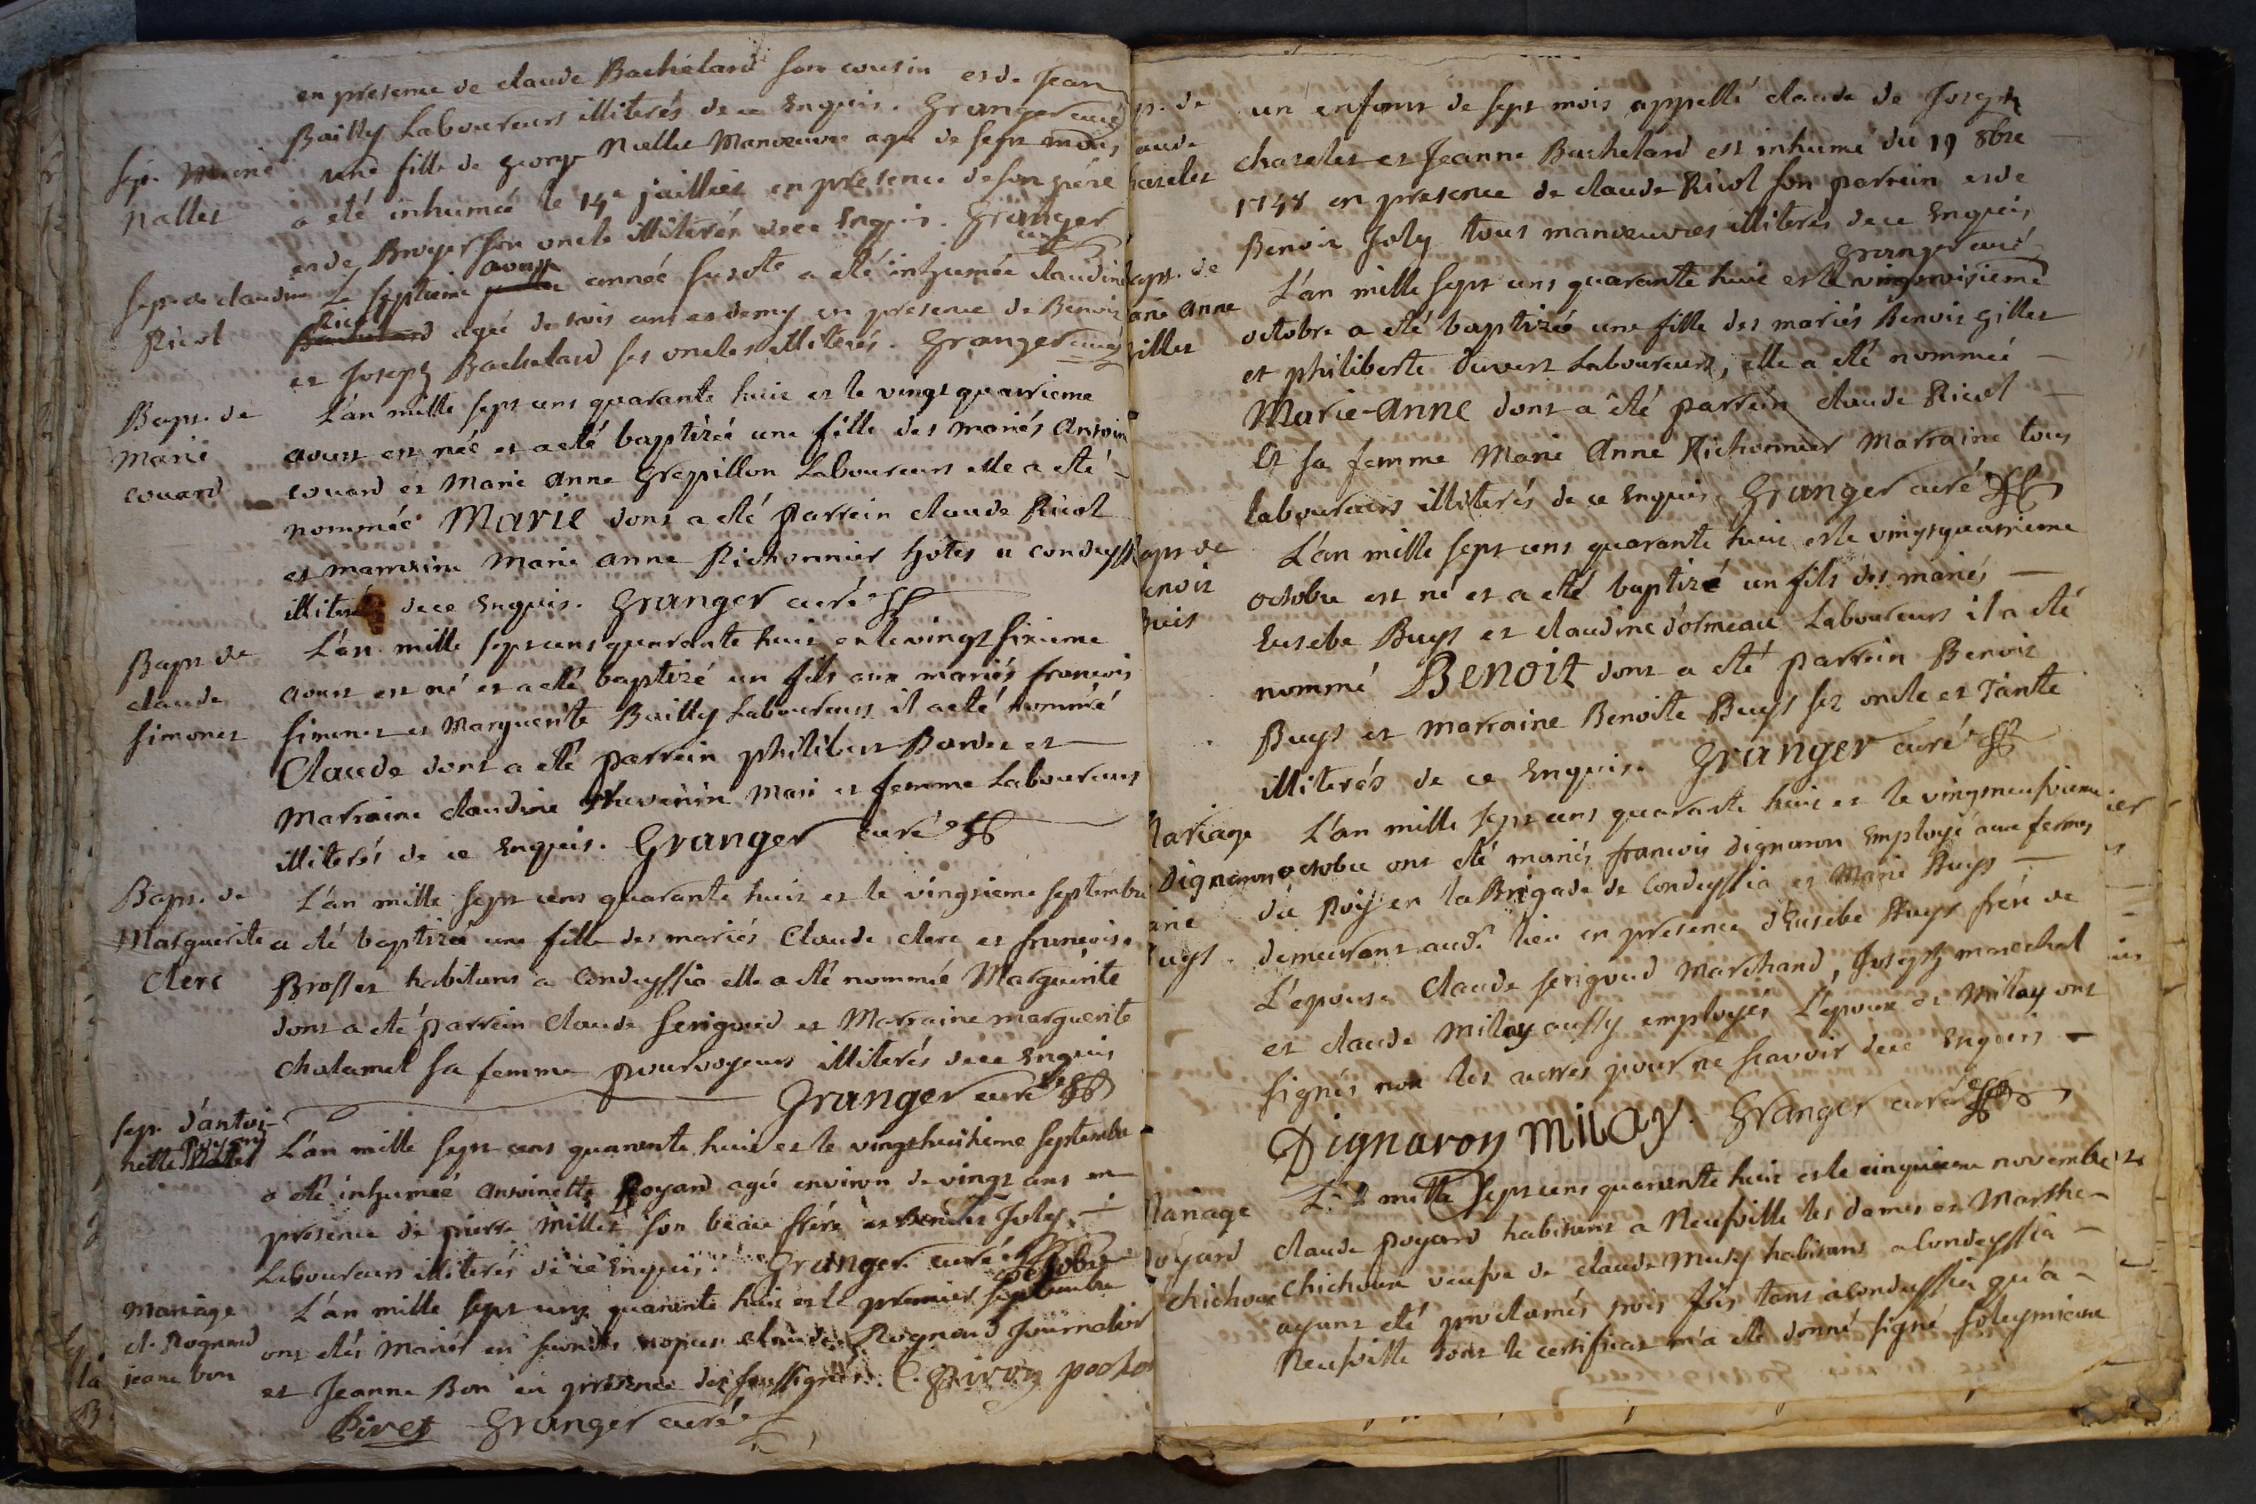 en presence de claude Bachelard son cousin et de Jean
Bailly Laboureurs illiterés de ce Enquis. Granger curé
sep. Marie
nallet
une fille de george Nallet Manoeuvre agé de sept mois
a eté inhumée le 14e juilliet en presence de son pére
et de Broyer son oncle illiterés de ce Enquis. Granger
curé
sep. de claudine
Ricol
Le septieme aoust année susdte a eté inhumée claudine
Ricol agée de trois ans et demy en presence de Benoit
et Joseph Bachelard ses oncles illiterés. Granger curé
Bapt. de
Marie
couard
L'an mille sept cens quarante huit et le vingt quatrieme
aoust est née et a eté baptizée une fille des mariés Antoine
couard et Marie Anne Grepillon Laboureurs elle a eté
nommée Marie dont a eté parrein claude Ricol
et marreine Marie anne Richonnier hôtes a condeyssia
illiterés de ce Enquis. Granger curé
Bapt. de
claude
simonet
L'an mille sept cens quarante huit et le vingt sixieme
aoust est né et a eté baptizé un fils aux mariés francois
simonet et Marguerite Bailly Laboureurs il a eté nommé
Claude dont a eté parrein philibert Bordet et
Marraine claudine thevenin Mari et femme Laboureurs
illiterés de ce Enquis. Granger curé
Bapt. de
Marguerite
Clerc
L'an mille sept cens quarante huit et le vingtieme septembre
a eté baptizée une fille des mariés Claude clerc et francoise
Brosset habitans a Condeyssia elle a eté nommée Marguérite
dont a eté parrein Claude serigoud et Marraine marguerite
chalamel sa femme pourvoyeurs illiterés de ce Enquis
Granger curé
sep. d'antoi-
nette Poyard
L'an mille sept cens quarante huit et le vingthuitieme septembre
a eté inhumée antoinette Poyard agée environ de vingt ans en
presence de pierre Millet son beau frére et Benoit Joly
Laboureurs illiterés de ce Enquis. Granger curé
Mariage
cl. Rognard
jeane bon
L'an mille sept cens quarante huit et le premier octobre
ont etés Mariés en secondes nopces claude Rognard Journalier
et Jeanne Bon en presence des soussignés. C. Pivet
Pivet Granger curé
p. de
aude
hazelet
un enfant de sept mois appellé claude de Joseph
chazelet et Jeanne Bachelard est inhumé du 19 8bre
1748 en presence de claude Ricol son parrein et de
Benoit Joly tous manoeuvres illiterés de ce Enquis
Granger curé
apt. de
arie Anne
gillet
L'an mille sept cens quarante huit et le vingttroisieme
octobre a eté baptizée une fille des mariés Benoit gillet
et philiberte Duvert Laboureurs, elle a eté nommée
Marie-Anne dont a eté parrein claude Ricol
Et sa femme Marie Anne Richonnier Marraine tous
laboureurs illiterés de ce Enquis Granger curé
apt de
enoit
Buis
L'an mille sept cens quarante huit et le vingtquatrieme
octobre est né et a eté baptizé un fils des mariés
Eusebe Buys et claudine d'ormeau Laboureurs il a eté
nommé Benoit dont a eté parrein Benoit
Buys et marraine Benoite Buys ses oncle et Tante
illiterés de ce Enquis. Granger curé
Mariage
Dignaron
arie
Buys
L'an mille sept cens quarante huit et le vingtneufvieme
octobre ont eté mariés francois Dignaron Employé aux fermes
du Roy en la Brigade de Condeyssia et Marie Buys
demeurans audt lieu en presence d'Eusebe Buys frére de
L'epouse Claude serigoud Marchand, Joseph marechal
et claude Milay aussy employés L'époux et Milay ont
signés non les autres pour ne scavoir de ce Enquis
Dignaron Milay. Granger curé
Mariage
Poyard
chichoux
L'an mille sept cens quarante huit et le cinquieme novembre
claude poyard habitant a Neufville les dames et Marthe
Chichoux veufve de claude Muty habitans a Condeyssia
ayant eté proclamés trois fois tant a Condeyssia qu'a
Neufville dont le certificat m'a eté donné signé